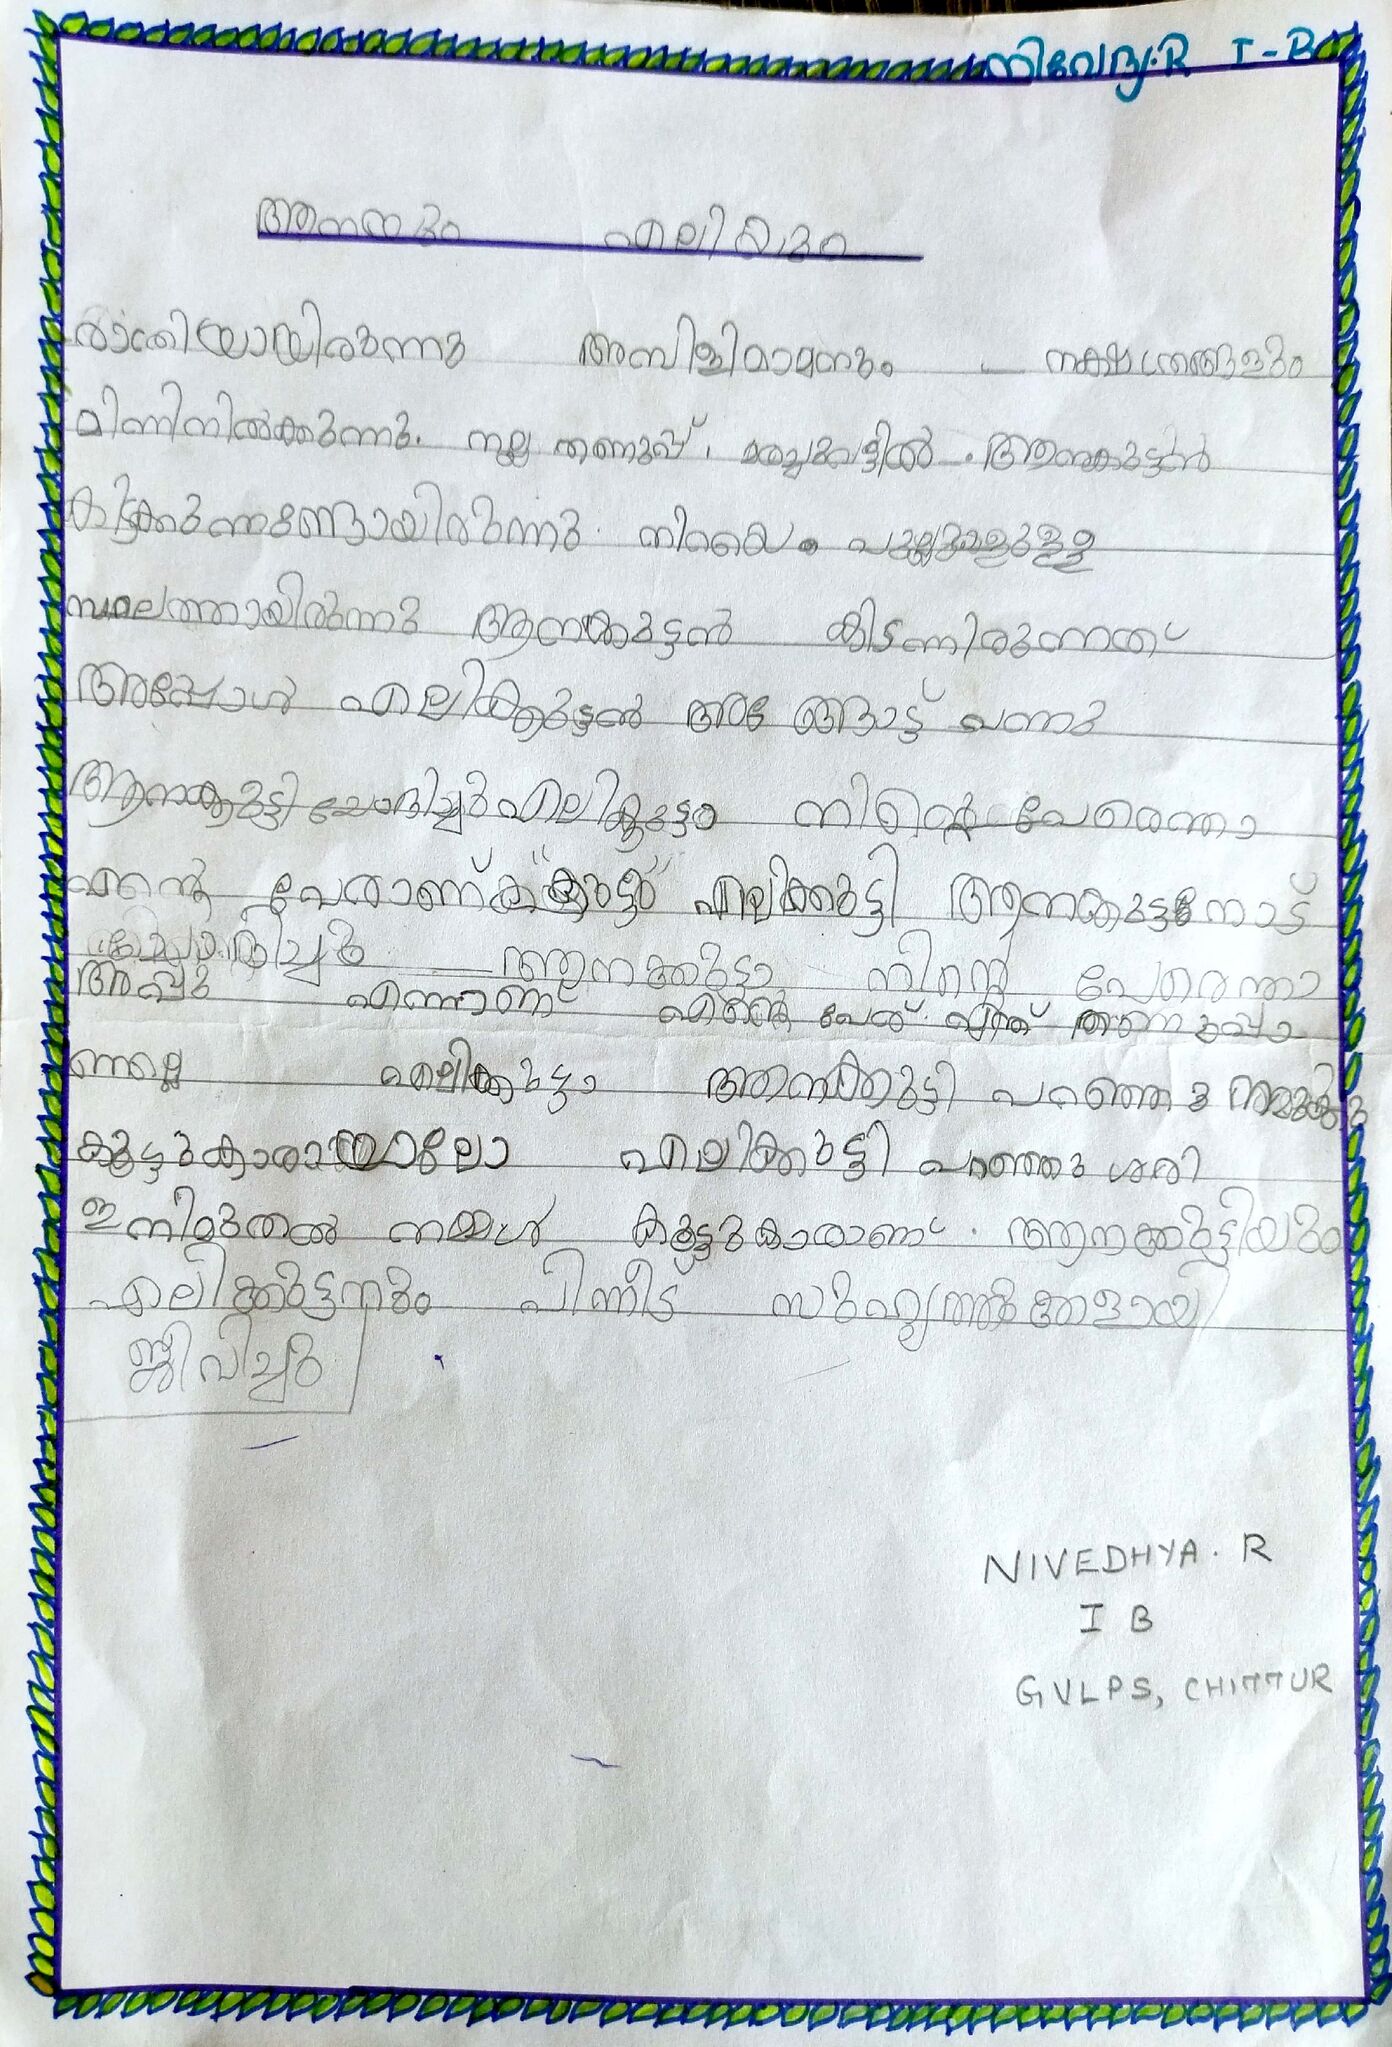 നിവേദ്യ.R I-B
ആനയും എലിയും
രാത്രിയായിരുന്നു അമ്പിളിമാമനും നക്ഷത്രങ്ങളും
മിന്നിനിൽക്കുന്നു. നല്ല തണുപ്പ്. മരച്ചുവട്ടിൽ. ആനകുട്ടൻ
കിടക്കുന്നുണ്ടായിരുന്നു. നിറയെ പുല്ലുകളുള്ള
സ്ഥലത്തായിരുന്നു ആനക്കുട്ടൻ കിടന്നിരുന്നത്
അപ്പോൾ എലിക്കുട്ടൻ അങ്ങോട്ട് വന്നു
ആനക്കുട്ടി ചോദിച്ചു എലിക്കുട്ടാ നിന്റെ പേരെന്താ
എന്റെ പേരാണ് എലിക്കുട്ടി ആനക്കുട്ടനോട്
ചോദിച്ചു ആനക്കുട്ടാ നിന്റെ പേരെന്താ
അപ്പു എന്നാണ് എന്റെ പേര്. എന്ത് തണുപ്പാ
ണല്ലെ എലിക്കുട്ടാ ആനക്കുട്ടി പറഞ്ഞു നമുക്കു
കൂട്ടുകാരായാലോ എലിക്കുട്ടി പറഞ്ഞു ശരി
ഇനിമുതൽ നമ്മൾ കൂട്ടുകാരാണ്. ആനക്കുട്ടിയും
എലിക്കുട്ടനും പിന്നീട് സുഹൃത്തുക്കളായി
ജീവിച്ചു
NIVEDHYA. R
I B
GVLPS, CHITTUR